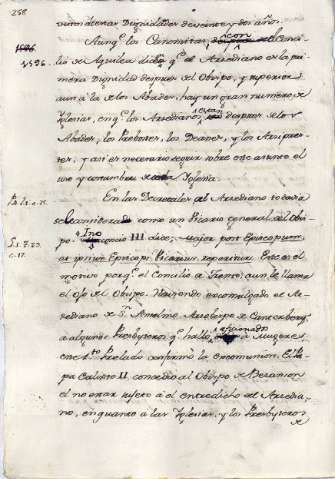 258
vieren de esas Dignidades de veinte y dos años.
Aunq.e los Canonistas, con el Conci-
lio de Aquilea digan q.e el Arzediano es la pri-
1596.
mera Dignidad despues del Obispo, y superior
aun à la de los Abades, hay un gran numero de
Iglesias, en q.e los Arzedianos, estan despues de los
Abades, los Prebostes, los Deanes, y los Arzipres-
tes, y asi es necesario seguir sobre este asunto el
uso y costumbre de cada Iglesia.
En las Decretales al Arzediano todavia
se le considera como un Vicario general del Obis-
po. Ino
cencio III dice: Major post Episcopum,
et ipsius Episcopi Vicarius reperitur. Este es el
motivo porq.e el Concilio de Trento, aun le llama
el Ojo del Obispo. Haviendo excomulgado el Ar-
zediano de S.n Anselmo Arzobispo de Cantorbery,
à algunos Presbyteros q.e hallò aficionados à Mugeres
este S.to Prelado confirmò la excomunion. El Pa-
pa Calixto II. concediò al Obispo de Besanzon
el no estar sujeto à el entredicho del Arzedia-
no, en quanto à las Iglesias, y los Presbyteros